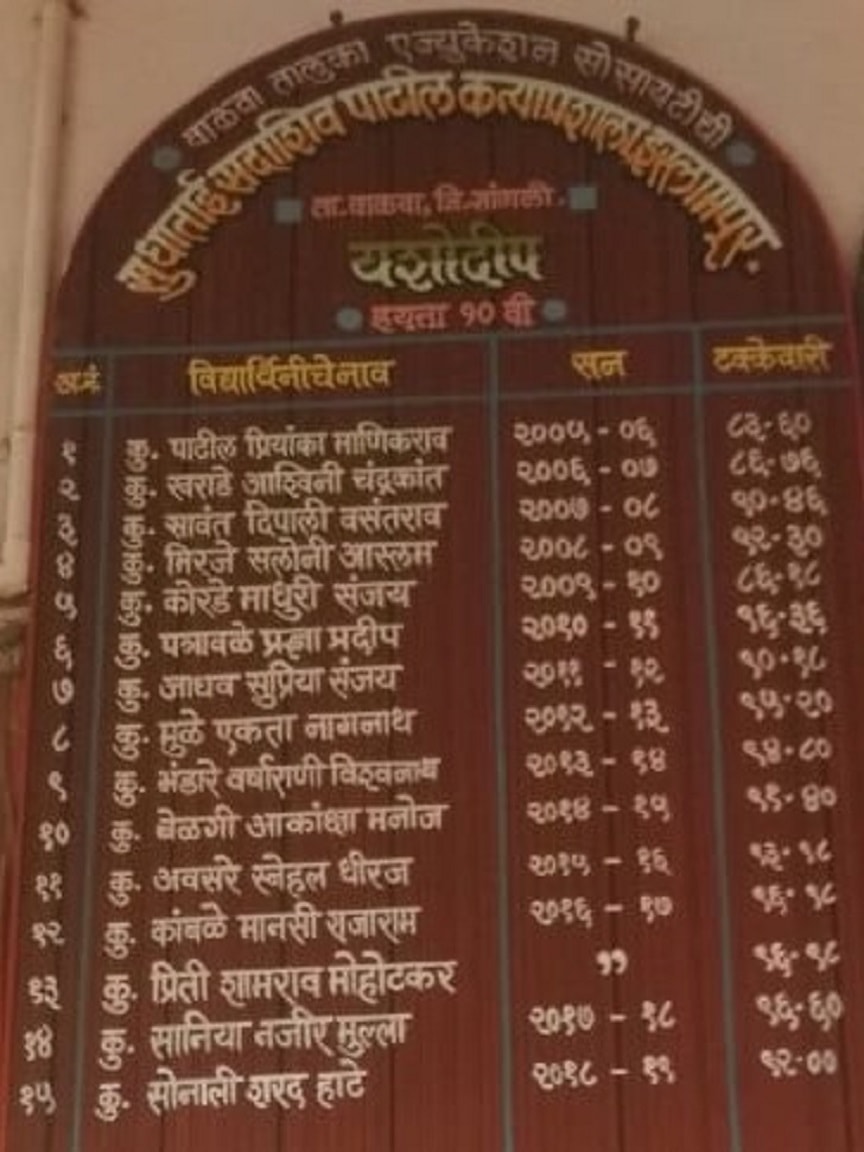 वाळवा तालुका एज्युकेशन सोसायटीची
सुधाताई सदाशिव पाटील कन्याप्रशाला इस्लामपूर.
ता.वाळवा, जि.सांगली.
यशोदीप
इयत्ता १० वी
अ.नं विद्यार्थिनीचे नाव सन टक्केवारी
१ कु. पाटील प्रियांका माणिकराव २००५ - ०६ ८३.६०
२ कु. खराडे आश्विनी चंद्रकांत २००६ - ०७ ८६.७६
३ कु. सावंत दिपाली वसंतराव २००७ - ०८ ९०.४६
४ कु. मिरजे सलोनी आस्लम २००८ - ०९ ९२.३०
५ कु. कोरडे माधुरी संजय २००९ - १० ८६.१८
६ कु. पत्रावळे प्रज्ञा प्रदीप २०१० - ११ ९६.३६
७ कु. जाधव सुप्रिया संजय २०११ - १२ ९०.१८
८ कु. मुळे एकता नागनाथ २०१२ - १३ ९५.२०
९ कु. भंडारे वर्षाराणी विश्वनाथ २०१३ - १४ ९४.८०
१० कु. बेळगी आकांक्षा मनोज २०१४ - १५ ९९.४०
११ कु. अवसरे स्नेहल धीरज २०१५ - १६ ९३.९८
१२ कु. कांबळे मानसी राजाराम २०१६ - १७ ९६.९८
१३ कु. प्रिती शामराव मोहोटकर " ९६.९८
१४ कु. सानिया नजीर मुल्ला २०१७ - १८ ९६.६०
१५ कु. सोनाली शरद हाटे २०१८ - १९ ९२.००